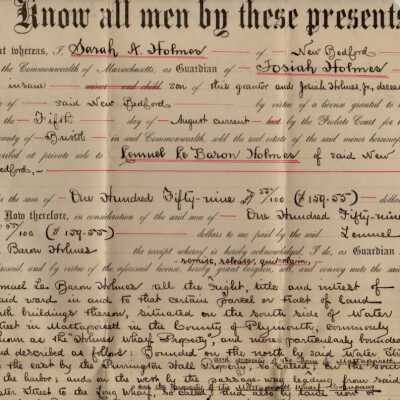 Know all men by these presents
whereas, I, Sarah A. Holmes of New Bedford
the Commonwealth of Massachusetts, as Guardian of Josiah Holmes
insane minor and child son of this grantor and Josiah Holmes, Jr.,
of said New Bedford by virtue of a license granted to
the Fifth day of August current by the Probate Court for
of Bristol in said Commonwealth, sold the real estate of the said minor
at private sale to Lemuel Le Baron Holmes of said New
the sum of One Hundred Fifty-nine 55/100 ($159.55)
Now therefore, in consideration of the said sum of One Hundred Fifty-nine
/100 ($159.55) dollars to me paid by the said Lemuel
Baron Holmes the receipt whereof is hereby acknowledged, I do, as Guardian
remise, release & quitclaim,
and by virtue of the aforesaid license, hereby grant, bargain, sell, and convey unto the said
Le Baron Holmes all the right, title and interest of
said ward in and to that certain parcel or tract of land
buildings thereon, situated on the south side of Water
in Mattapoisett in the County of Plymouth, commonly
as the Holmes Wharf Property, and more particularly bounded
and described as follows: Bounded on the north by said Water
the east by the Purrington Hall Property, so called, on the south
the harbor, and on the west by the passage way leading from said
Street to the so called, and also by land now or